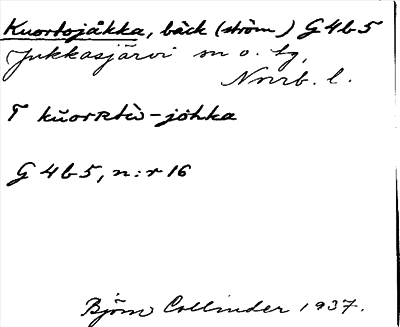 Kuortojåkka, bäck (ström) G4b5
Jukkasjärvi sn o. tg,
Norrb. l.
T kŭorRtè̮-johka
G4b5, n:r 16
Björn Collinder 1937.